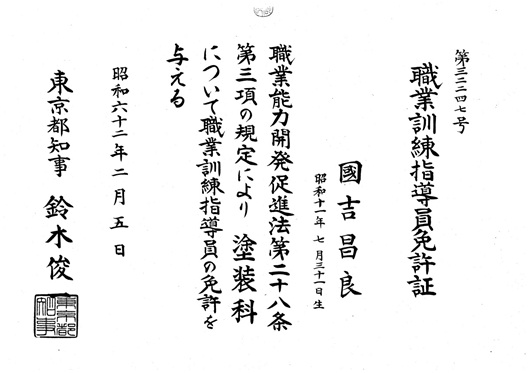 第三二二四七号
職業訓練指導員免許証
國吉昌良
昭和十一年七月三十一日生
職業能力開発促進法第二十八条
第三項の規定により 塗装科
について職業訓練指導員の免許を
与える
昭和六十二年二月五日
東京都知事 鈴木俊一
東京都知事